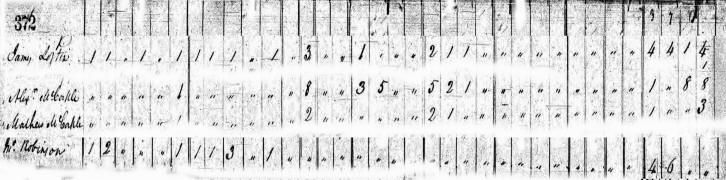 372
5 7
James Loftin 1 1 " 1 " 1 1 1 1 " 1 " 3 " " 1 " " " 2 1 1 " " " " " " " " " 4 4 1 4
1
Alexr. McCaple " " " " " 1 " " " " " " 8 " " 3 5 " " 5 2 1 " " " " " " " " " 1 " 8 8
Mathew McCaple " " " " " 1 " " " " " " 2 " " " " " " 2 1 " " " " " " " " " " 1 " " 3
Robinson 1 2 " " " 1 1 1 3 " 1 " " " " " " " " " " " " " " " " " " " " 4 6 " "